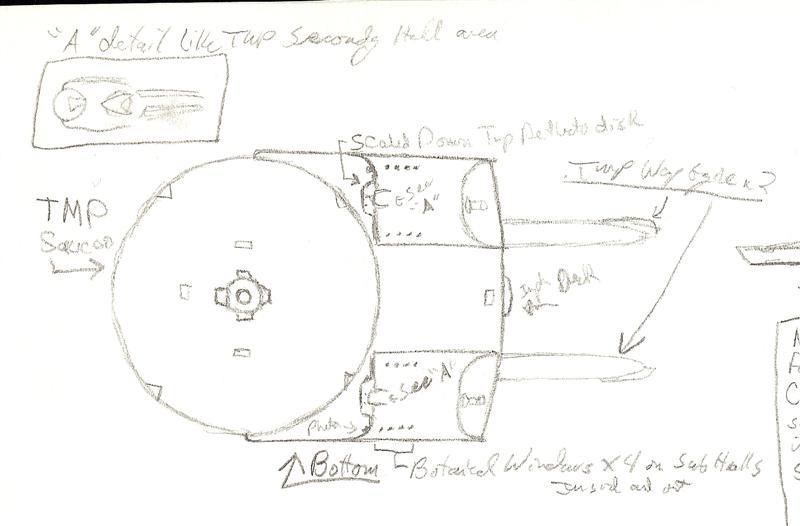 "A" detail like TMP Secondy Hull area
Scaled Down Tmp Deflecto disk
Tmp Warp Engine x2
TMP
Saucer
See
"A"
Impl Deck
See "A"
photon
Bottom
Botanical Windows X 4 on Sub Hulls
Inside and out